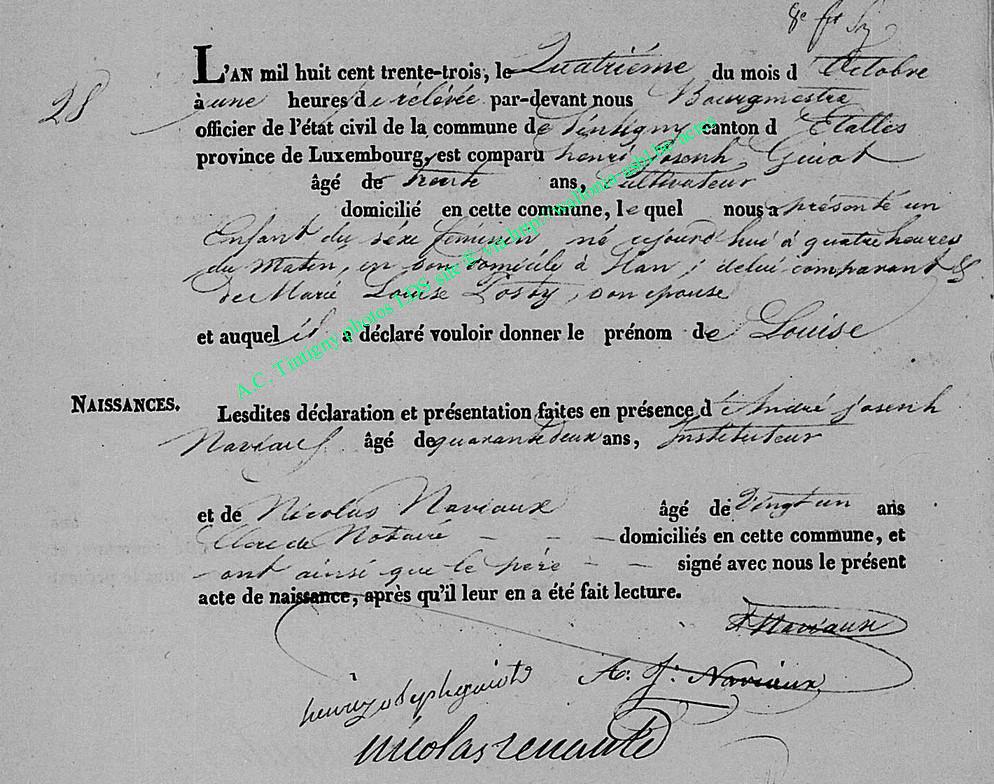 28
L'AN mil huit cent trente-trois, le Quatriéme du mois d'Octobre
à une heures de rélévée par-devant nous Bourgmestre
officier de l'état civil de la commune de Tintigny canton d'Etalles
province de Luxembourg, est comparu henri Joseph Guiot
âgé de trente ans, Cultivateur
domicilié en cette commune, le quel nous a présenté un
Enfant du séxe feminin né aujourd'hui à quatre heures
du Matin, en son domicile à Han, de lui comparant &
de Marie Louise, son épouse
et auquel il a déclaré vouloir donner le prénom de Louise
NAISSANCES.
Lesdites déclaration et présentation faites en présence d'André joseph
Naviaux âgé de quarante deux ans, Instituteur
et de Nicolas Naviaux âgé de Vingt un ans
Clerc de Notaire - - - domiciliés en cette commune, et
- ont ainsi que le père - - signé avec nous le présent
acte de naissance, après qu'il leur en a été fait lecture.
Naviaux
henri josephe guiot A. J. Naviaux
nicolas
A.C. Tintigny photos LDS site & via http://wallonia-asbl.be/actes